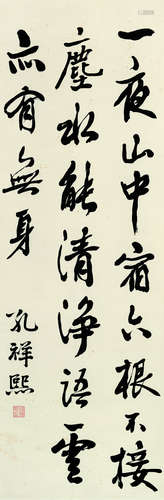 一夜山中宿六根不接
塵水能清淨語雲
亦有無身
孔祥熙